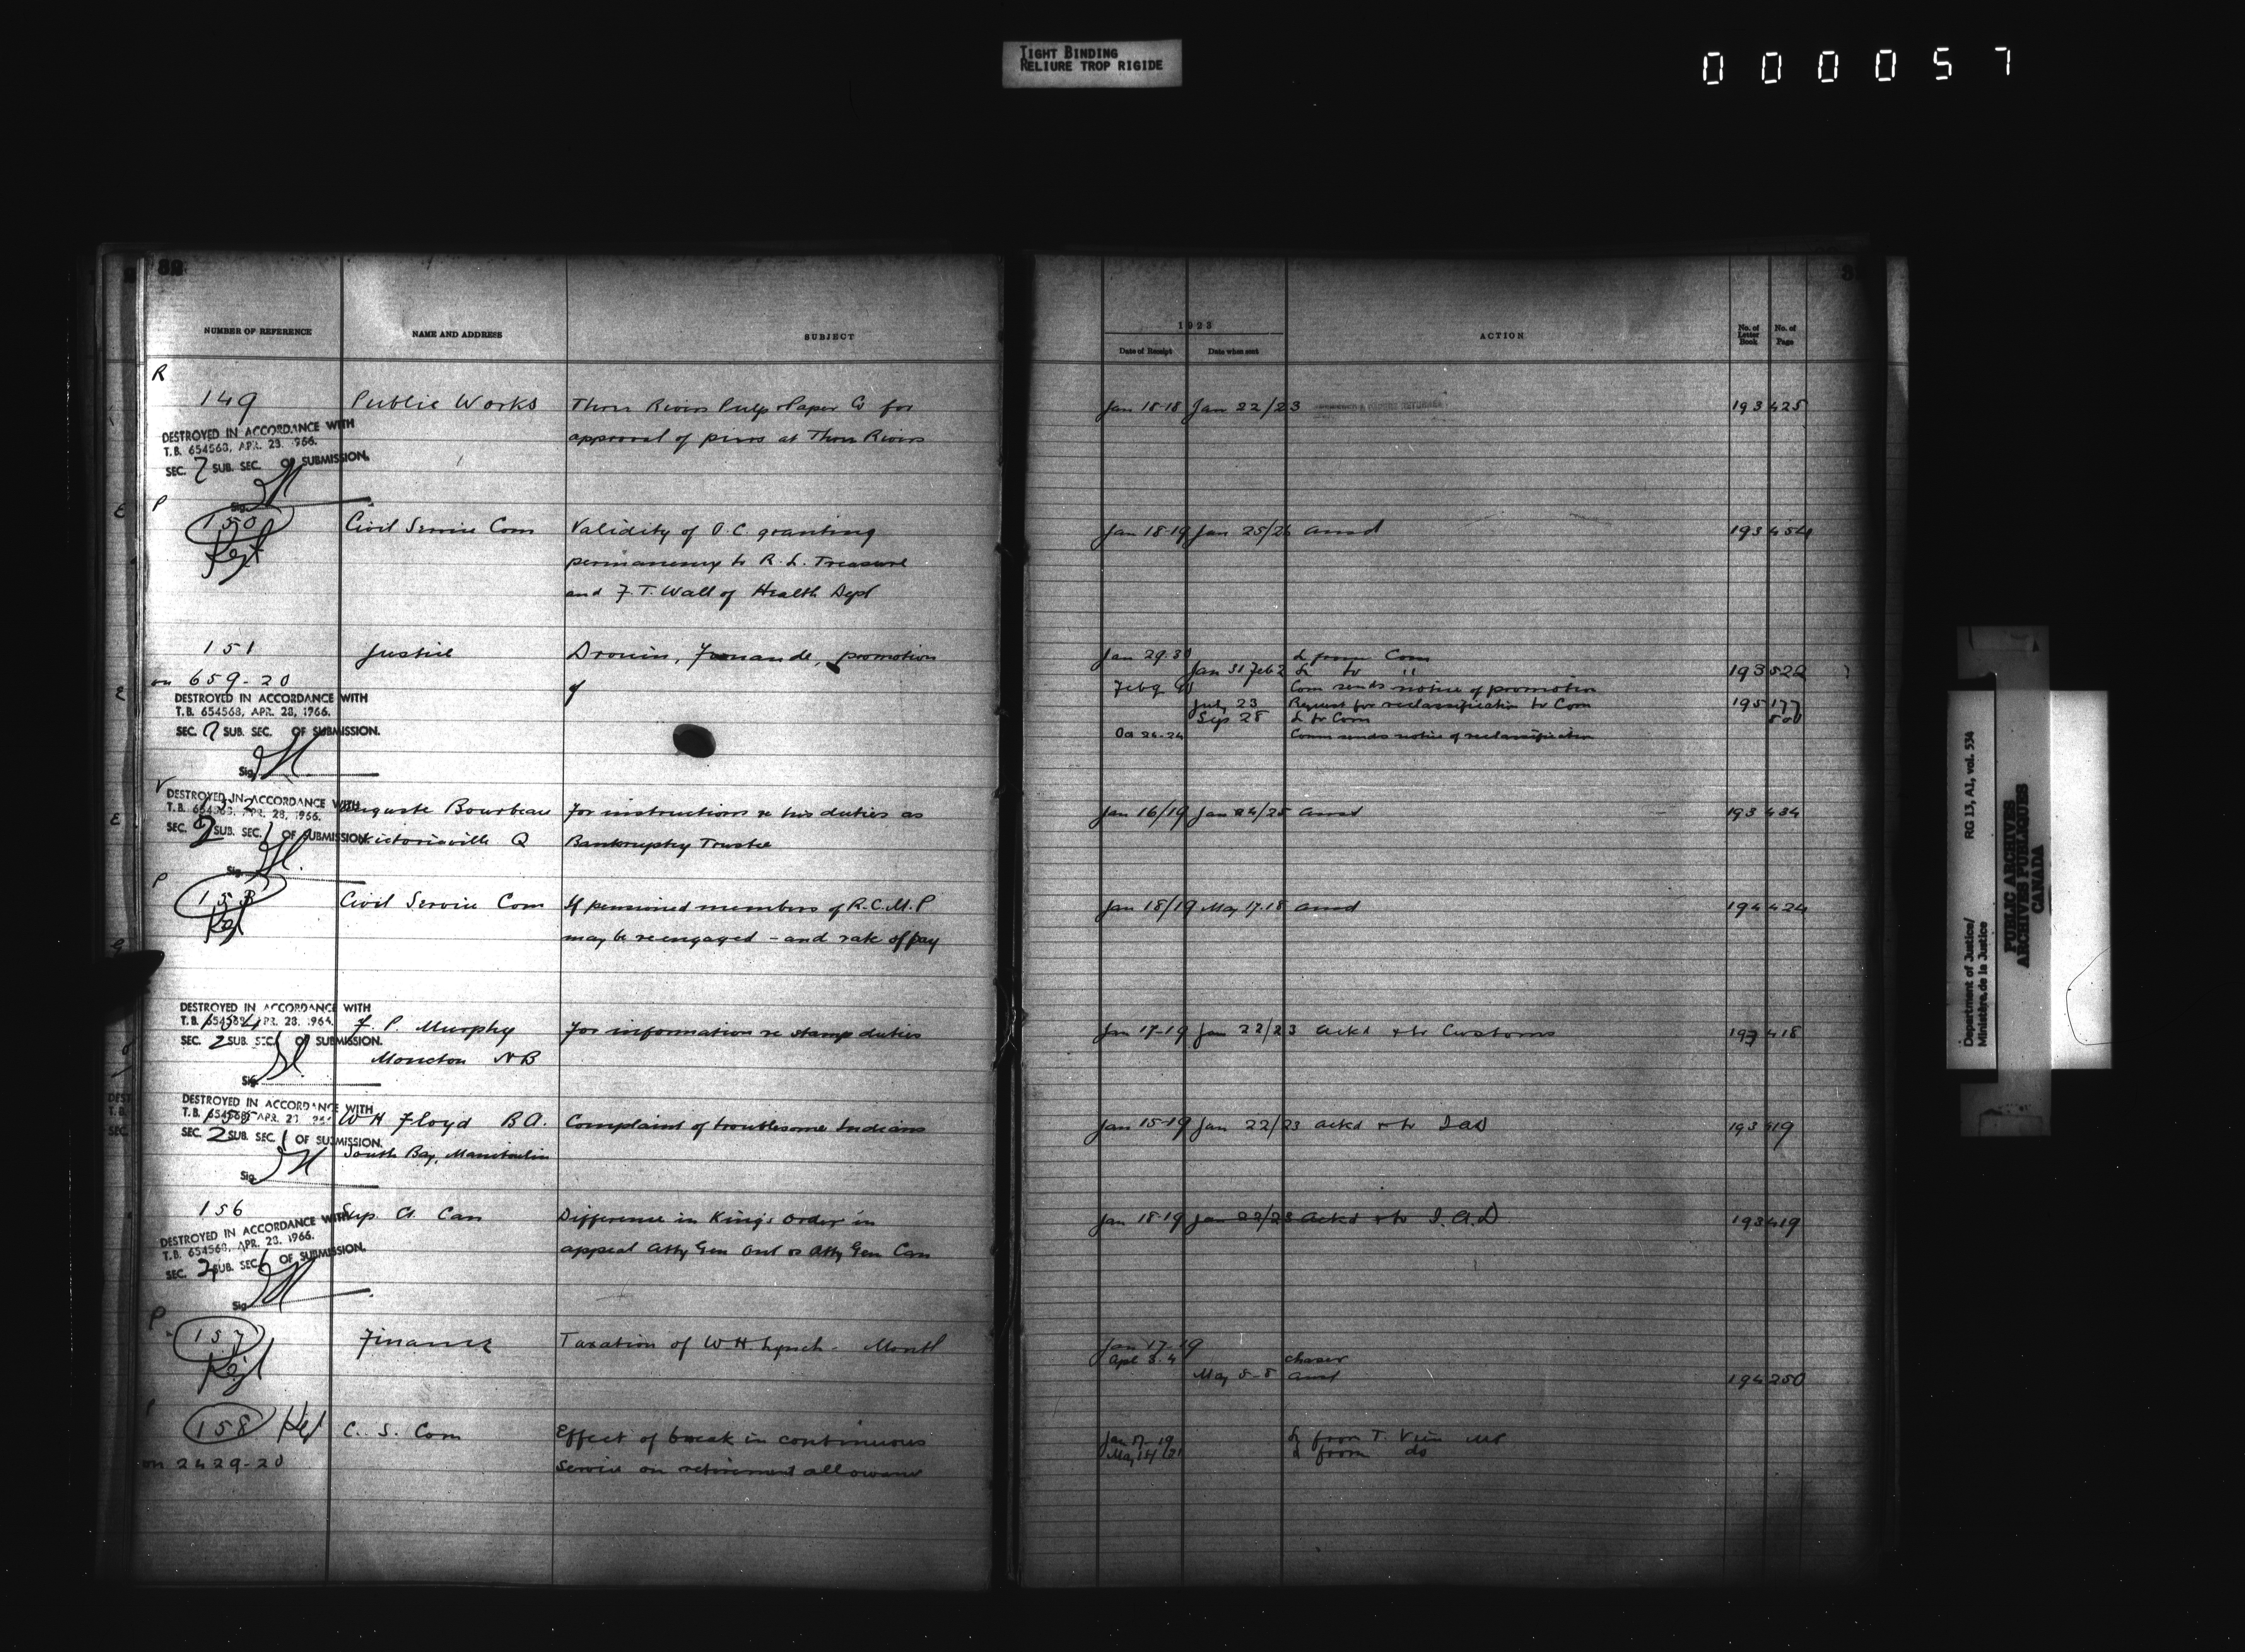 TIGHT BINDING
RELIURE TROP RIGIDE
000057
32
NUMBER OF REFERENCE NAME AND ADDRESS SUBJECT
1923
Date of Receipt Date when sent ACTION No. of Letter Book No. of Page
R
149 Public Works Three Rivers Pulp & Paper Co for
approval of piers at Three Rivers
Jan 18-18 Jan 22/23 193 425
DESTROYED IN ACCORDANCE WITH
T.B. 654568, APR. 28, 1966.
SEC. 2 SUB. SEC. OF SUBMISSION.
Sig.
P
150 Civil Service Com Validity of O.C. granting
permanency to R. L. Treasure
and F. T. Wall of Health Dept
Jan 18-19 Jan 25/26 ansd 193 454
151 Justice Drouin, promotion
of
on 659-20
Jan 29-30 L from Com
Jan 31 Feb 2 L to " 193 522
Feb 9 Com sends notice of promotion
July 23 Request for reclassification to Com 195 177
Sep 28 L to Com 500
Oct 24-24 Comm sends notice of reclassification
DESTROYED IN ACCORDANCE WITH
T.B. 654568, APR. 28, 1966.
SEC. 2 SUB. SEC. OF SUBMISSION.
Sig.
V
DESTROYED IN ACCORDANCE WITH
T.B. 654568, APR. 28, 1966.
SEC. 2 SUB. SEC. 1 OF SUBMISSION.
Sig.
152 Auguste Bourbeau For instructions re his duties as
Victoriaville Q Bankruptcy Trustee
Jan 16/19 Jan 24/25 ansd 193 434
P
153 Civil Service Com If pensioned members of R.C.M.P
may be reengaged - and rate of pay
Jan 18/19 May 17-18 ansd 194 424
DESTROYED IN ACCORDANCE WITH
T.B. 654568, APR. 28, 1966.
SEC. 2 SUB. SEC. OF SUBMISSION.
Sig.
154 F. P. Murphy For information re stamp duties
Moncton NB
Jan 17-19 Jan 22/23 Ackd & to Customs 193 418
DESTROYED IN ACCORDANCE WITH
T.B. 654568, APR. 28, 1966
SEC. 2 SUB. SEC. 1 OF SUBMISSION.
Sig.
155 W H Floyd B.A. Complaint of troublesome Indians
South Bay, Manitoulin
Jan 15-19 Jan 22/23 ackd & to IAD 193 419
156 Sup. Ct. Can Difference in King's Order in
appeal Atty Gen Ont vs Atty Gen Can
Jan 18-19 Jan 22/23 Ackd & to I.A.D 193 419
DESTROYED IN ACCORDANCE WITH
T.B. 654568, APR. 28, 1966.
SEC. 2 SUB. SEC. 6 OF SUBMISSION.
Sig.
P
157 Finance Taxation of W H Lynch - Montl
Jan 17-19
Apl 3-4 chaser
May 5-8 ansd 194 250
158 C. S. Com Effect of break in continuous
on 2429-20 service on retirement allowance
Jan 17-19 L from T. Vien MP
May 14/21 L from do
Department of Justice/
Ministère de la Justice
RG 13, A1, vol. 534
PUBLIC ARCHIVES
ARCHIVES PUBLIQUES
CANADA